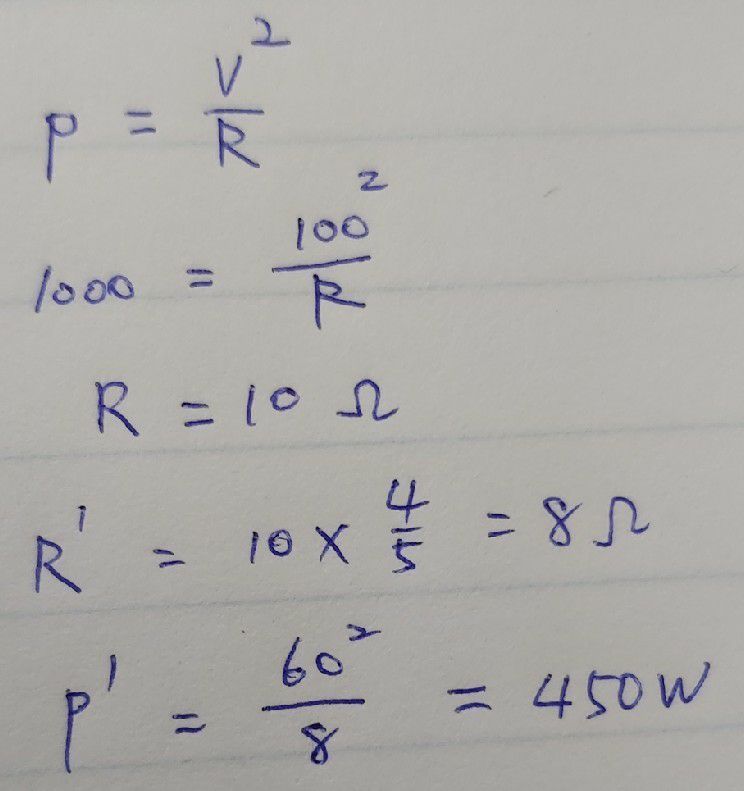 P = V²/R
1000 = 100²/R
R = 10 Ω
R' = 10 × 4/5 = 8 Ω
P' = 60²/8 = 450 W